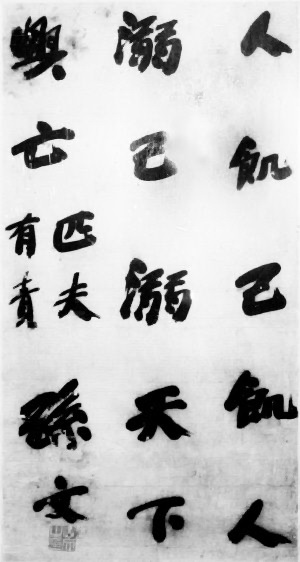 人飢己飢人
溺己溺天下
興亡
匹夫
有責
孫文